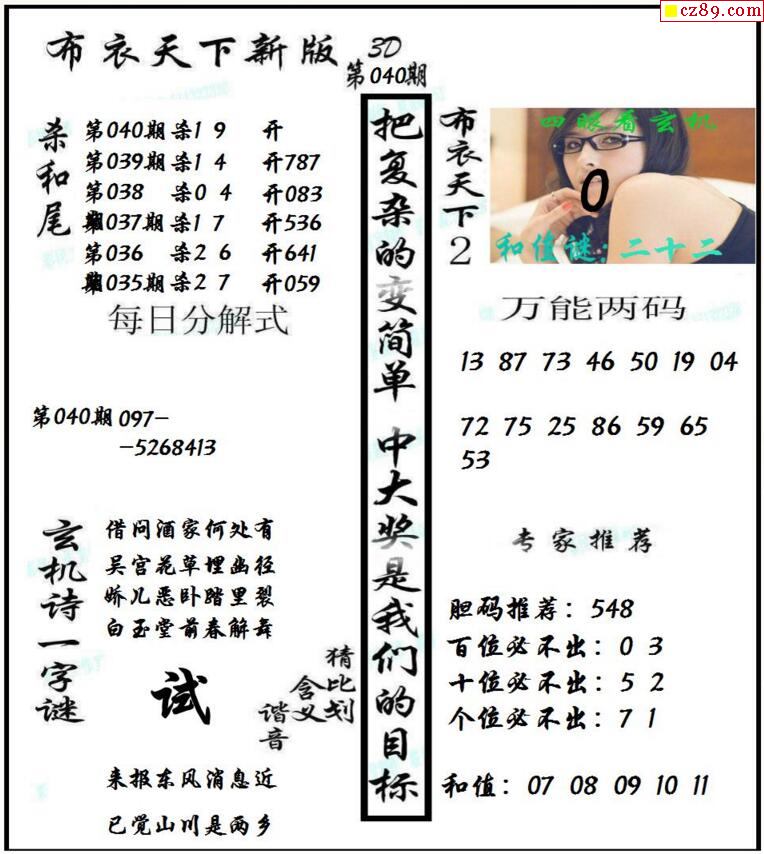 cz89.com
布衣天下新版 3D
第040期
杀和尾
第040期 杀1 9 开
第039期 杀1 4 开787
第038 杀0 4 开083
期037期 杀1 7 开536
第036 杀2 6 开641
期035期 杀2 7 开059
每日分解式
第040期 097-
-5268413
玄机诗一字谜
借问酒家何处有
吴宫花草埋幽径
娇儿恶卧踏里裂
白玉堂前春解舞
试
猜比划
含义
谐音
来报东风消息近
已觉山川是两乡
把复杂的变简单 中大奖是我们的目标
布衣天下2
四眼看玄机
0
和值谜：二十二
万能两码
13 87 73 46 50 19 04
72 75 25 86 59 65
53
专家推荐
胆码推荐：548
百位必不出：0 3
十位必不出：5 2
个位必不出：7 1
和值：07 08 09 10 11